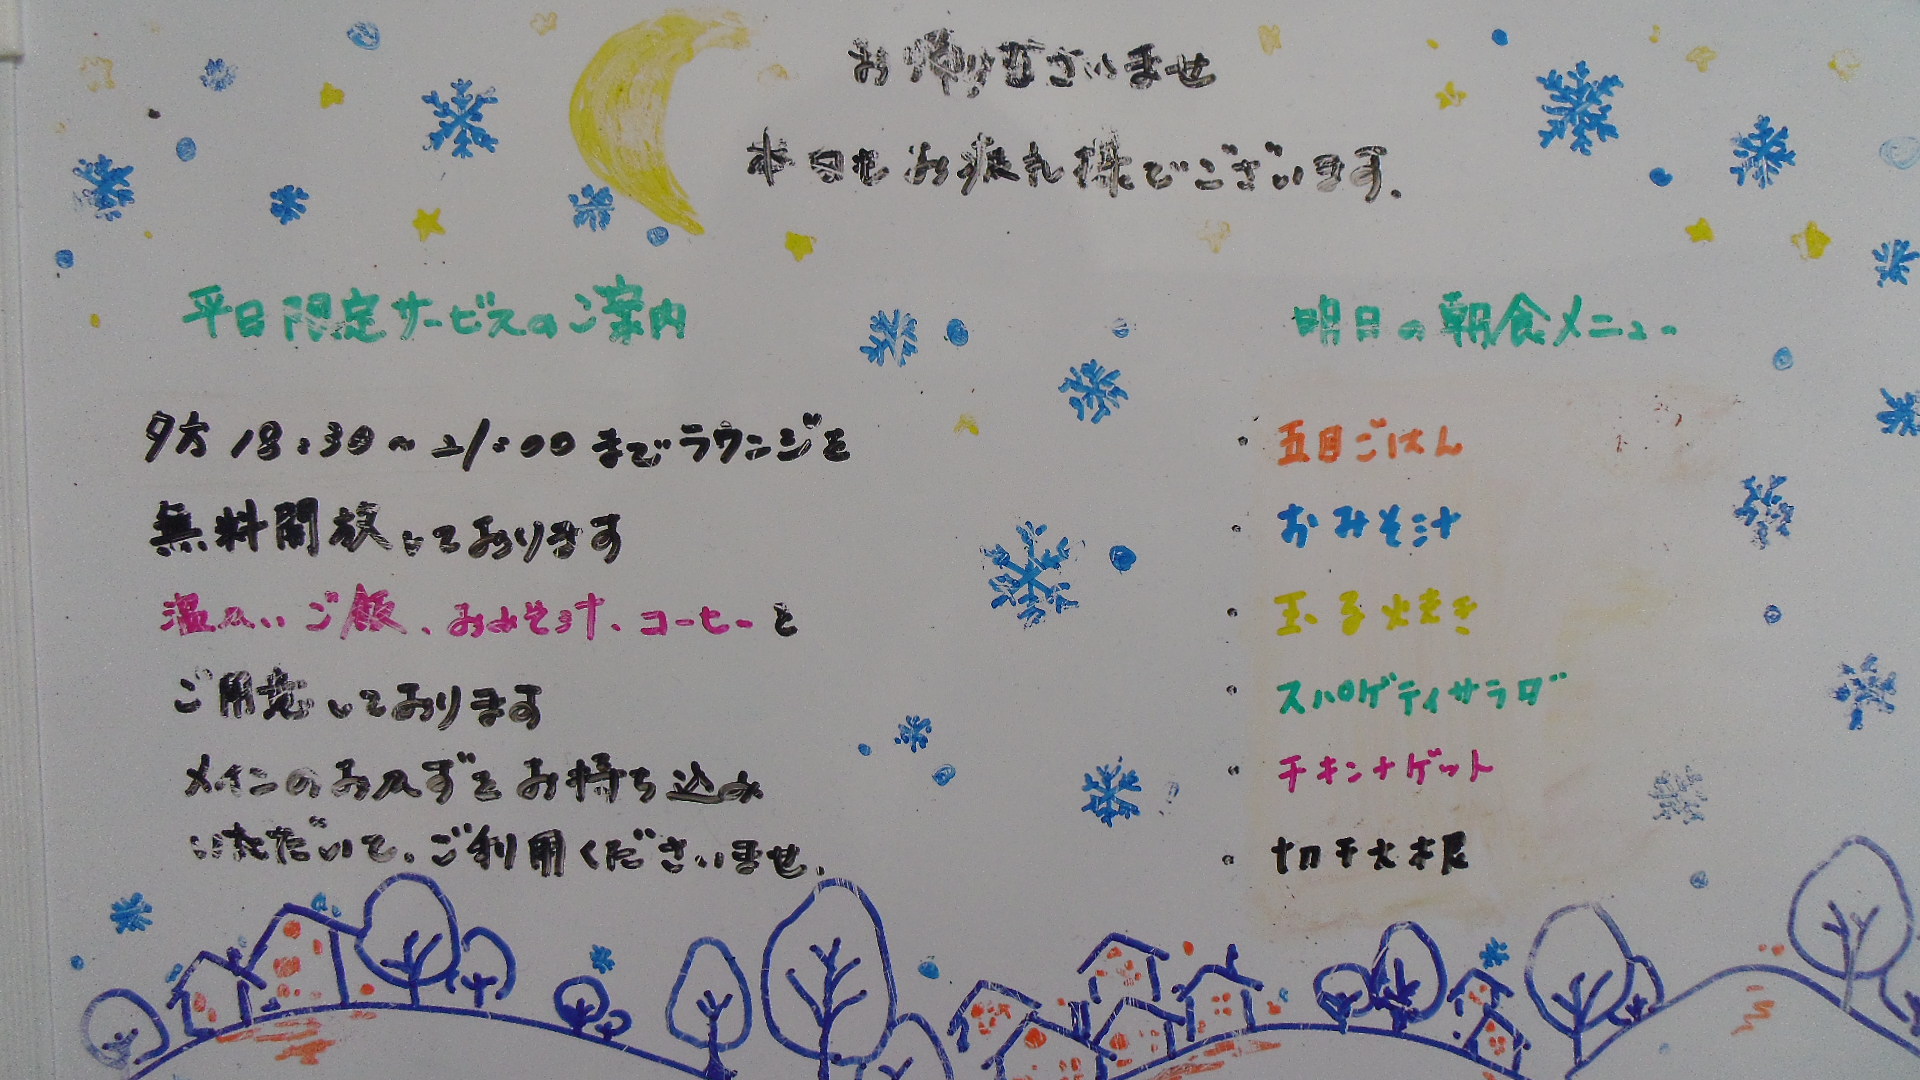 お帰りなさいませ
本日もお疲れ様でございます。
平日限定サービスのご案内
夕方 18:30～21:00までラウンジを
無料開放しております
温かいご飯、おみそ汁、コーヒーを
ご用意しております
メインのおかずをお持ち込み
いただいて、ご利用くださいませ。
明日の朝食メニュー
・五目ごはん
・おみそ汁
・玉子焼き
・スパゲティサラダ
・チキンナゲット
・切干大根